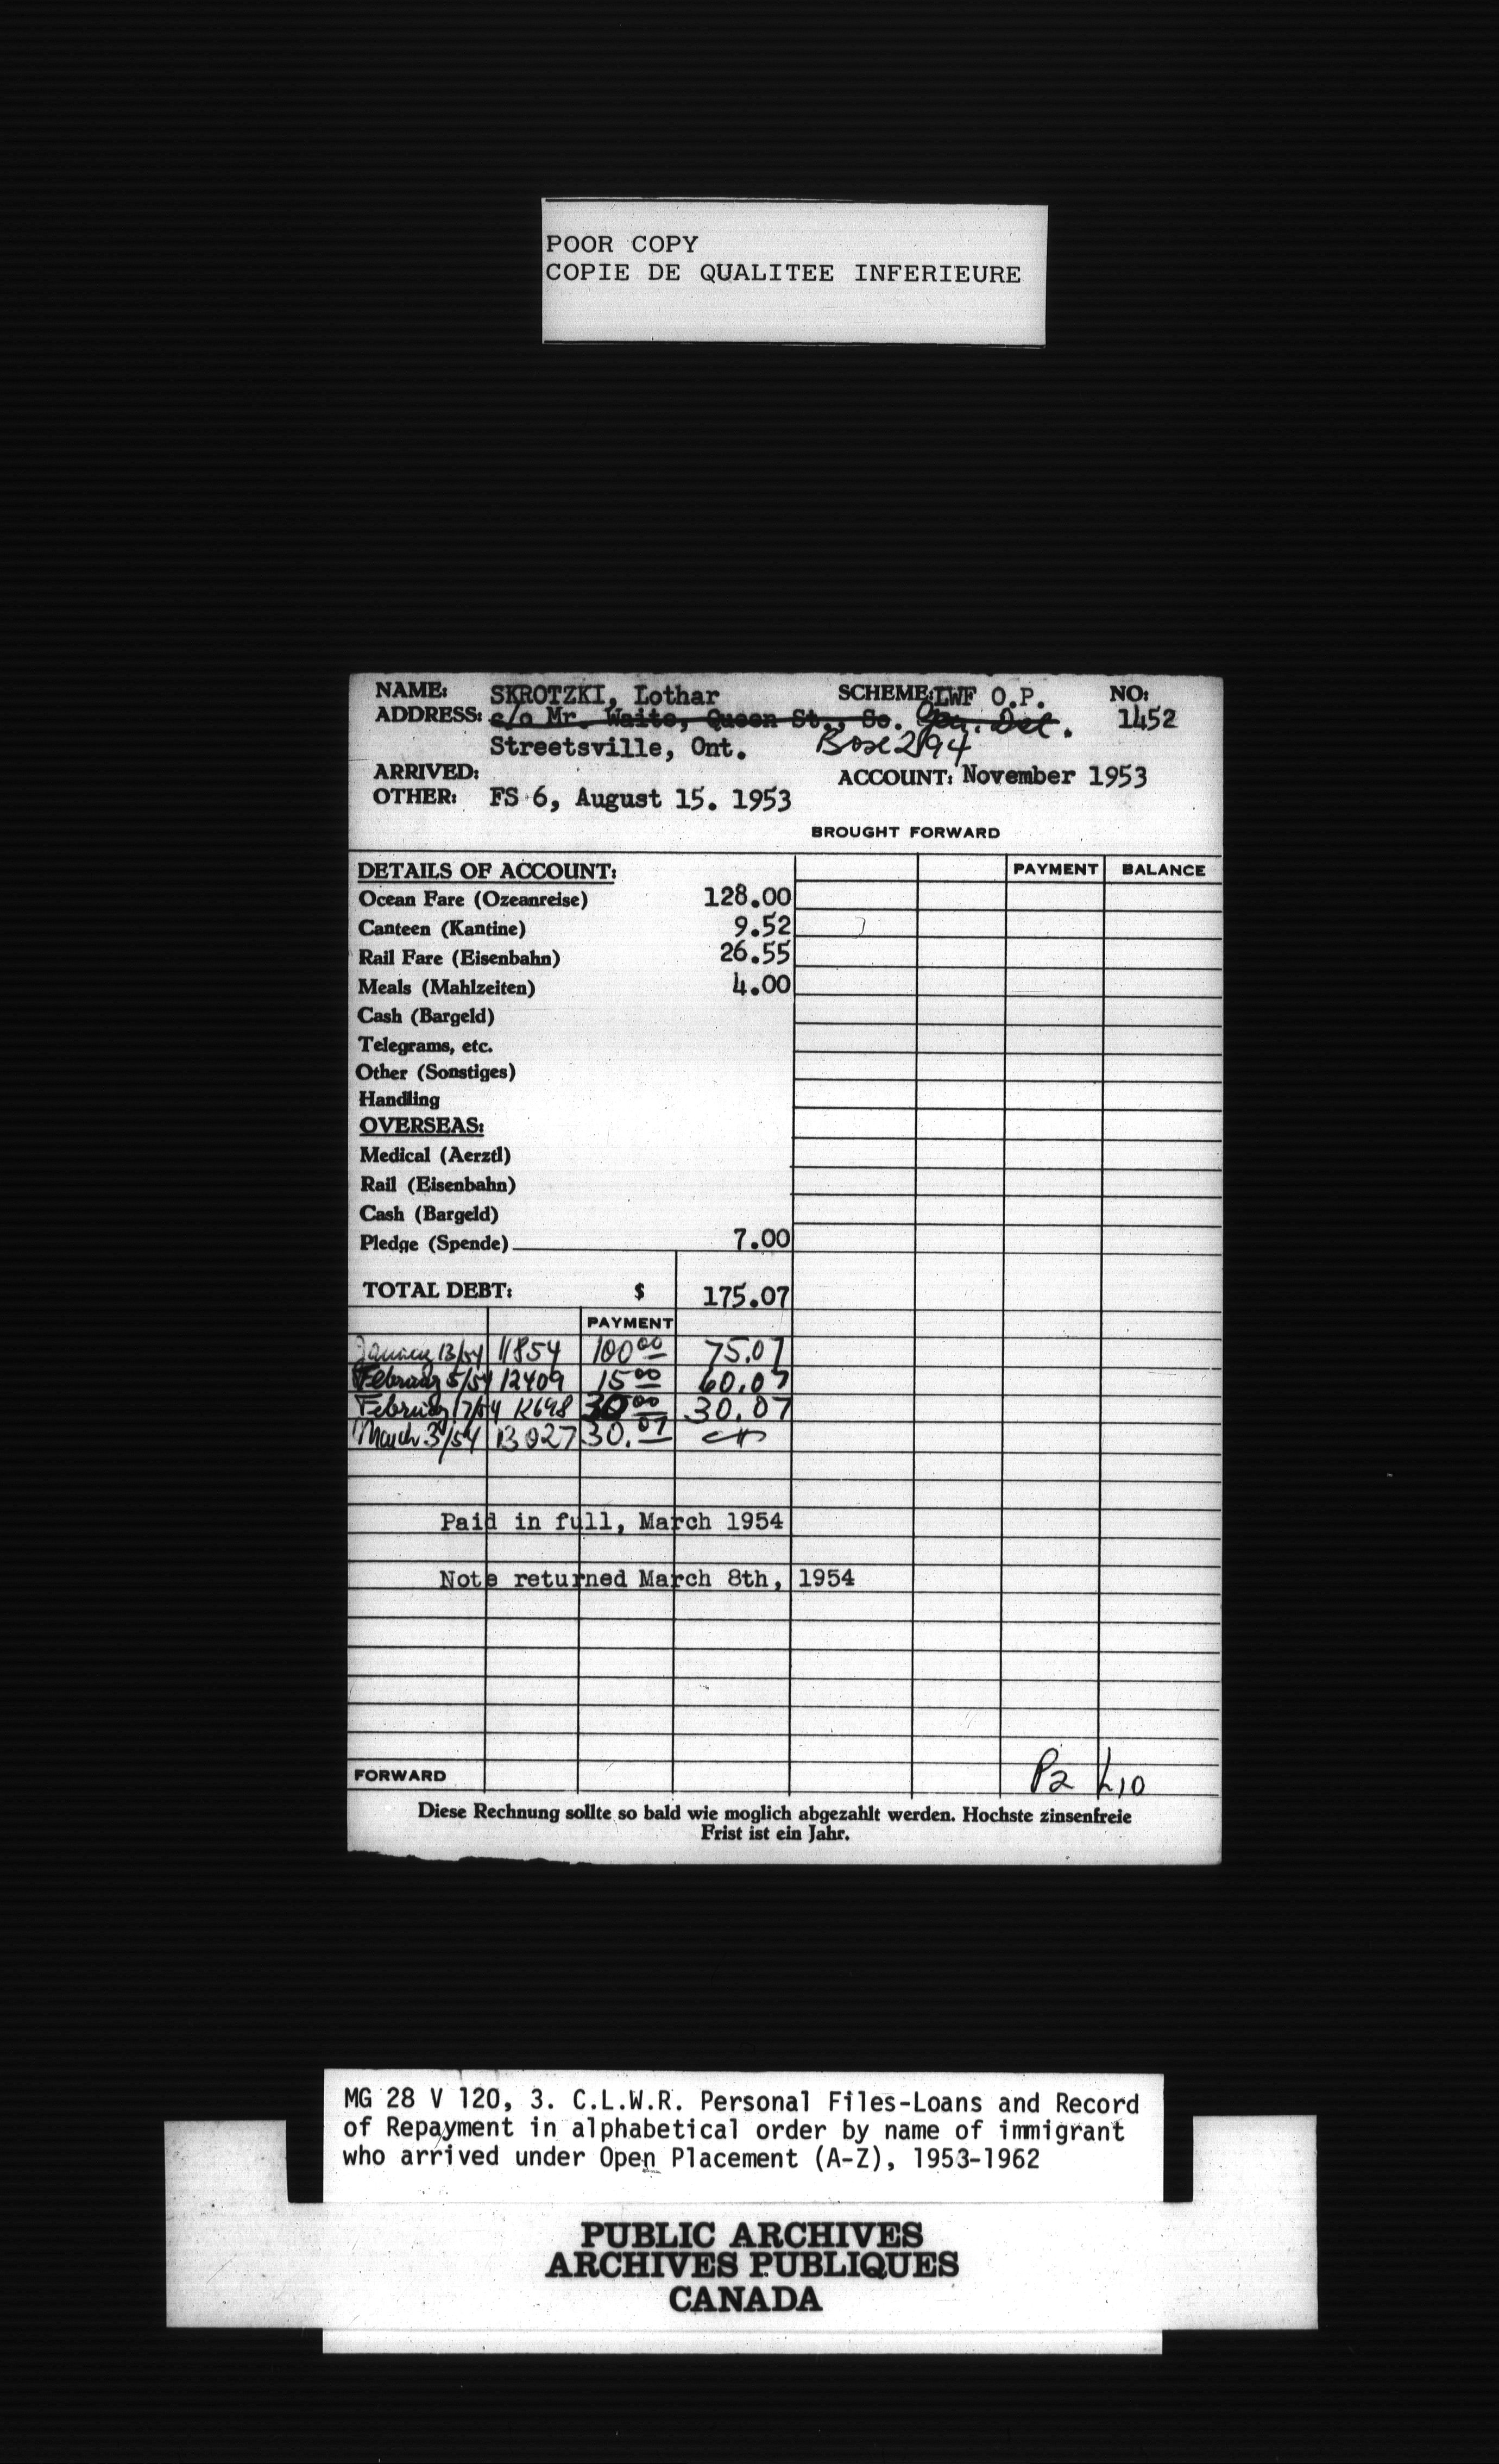 POOR COPY
COPIE DE QUALITEE INFERIEURE
NAME: SKROTZKI, Lothar SCHEME: LWF O.P. NO:
ADDRESS: c/o Mr. Waite, Queen St., So. Gen. Del. 1452
Streetsville, Ont. Box 294
ARRIVED: ACCOUNT: November 1953
OTHER: FS 6, August 15. 1953
BROUGHT FORWARD
DETAILS OF ACCOUNT: PAYMENT BALANCE
Ocean Fare (Ozeanreise) 128.00
Canteen (Kantine) 9.52
Rail Fare (Eisenbahn) 26.55
Meals (Mahlzeiten) 4.00
Cash (Bargeld)
Telegrams, etc.
Other (Sonstiges)
Handling
OVERSEAS:
Medical (Aerztl)
Rail (Eisenbahn)
Cash (Bargeld)
Pledge (Spende) 7.00
TOTAL DEBT: $ 175.07
PAYMENT
January 13/54 11854 100 00 75.07
February 5/54 12409 15 00 60.07
February 17/54 12698 30 00 30.07
March 3/54 13027 30. 07
Paid in full, March 1954
Note returned March 8th, 1954
P2 L10
FORWARD
Diese Rechnung sollte so bald wie moglich abgezahlt werden. Hochste zinsenfreie
Frist ist ein Jahr.
MG 28 V 120, 3. C.L.W.R. Personal Files-Loans and Record
of Repayment in alphabetical order by name of immigrant
who arrived under Open Placement (A-Z), 1953-1962
PUBLIC ARCHIVES
ARCHIVES PUBLIQUES
CANADA